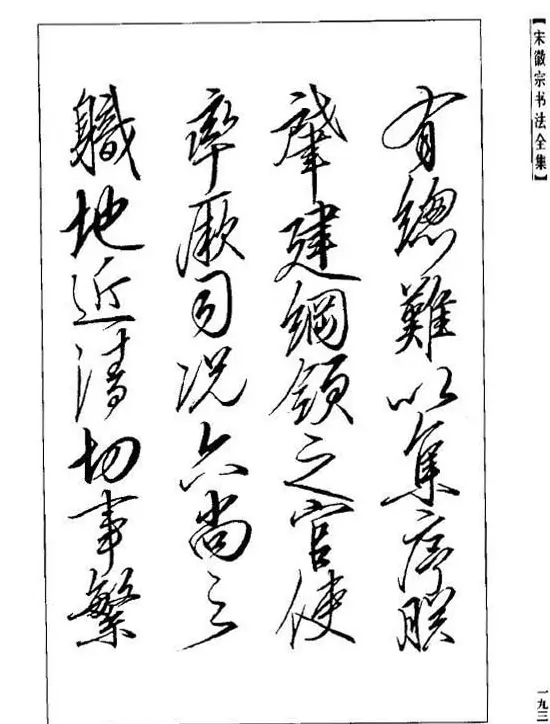 【宋徽宗书法全集】
有總難以集序朕
肇建綱領之官使
率厥司况六尚之
職地近清切事繁
一九三